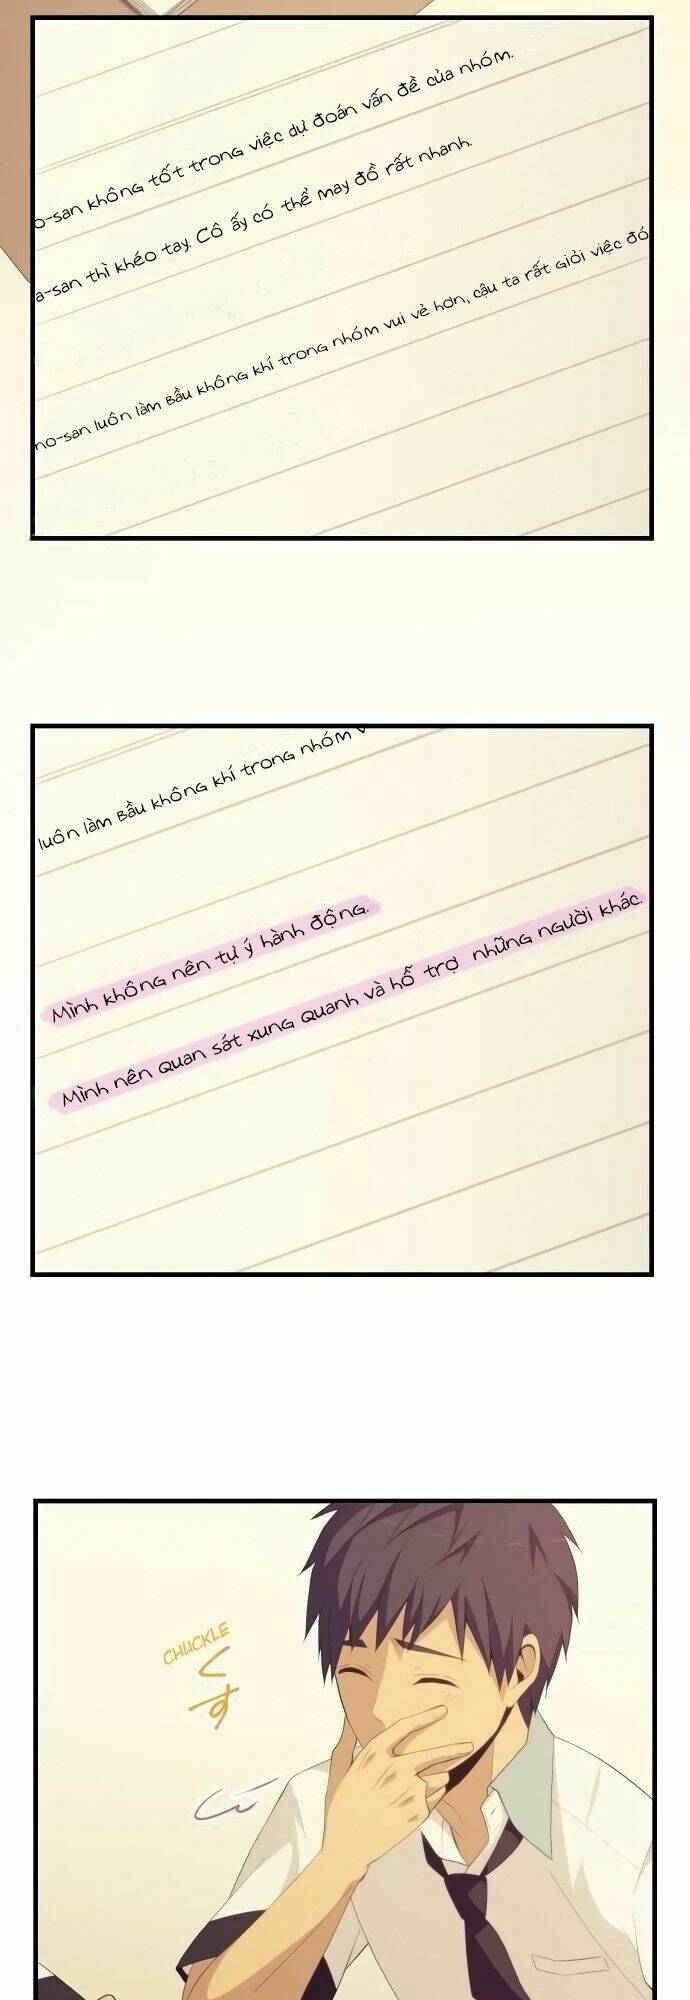 o-san không tốt trong việc dự đoán vấn đề của nhóm.
a-san thì khéo tay. Cô ấy có thể may đồ rất nhanh.
no-san luôn làm bầu không khí trong nhóm vui vẻ hơn, cậu ta rất giỏi việc đó
luôn làm bầu không khí trong nhóm v
Mình không nên tự ý hành động.
Mình nên quan sát xung quanh và hỗ trợ những người khác.
CHUCKLE
くす